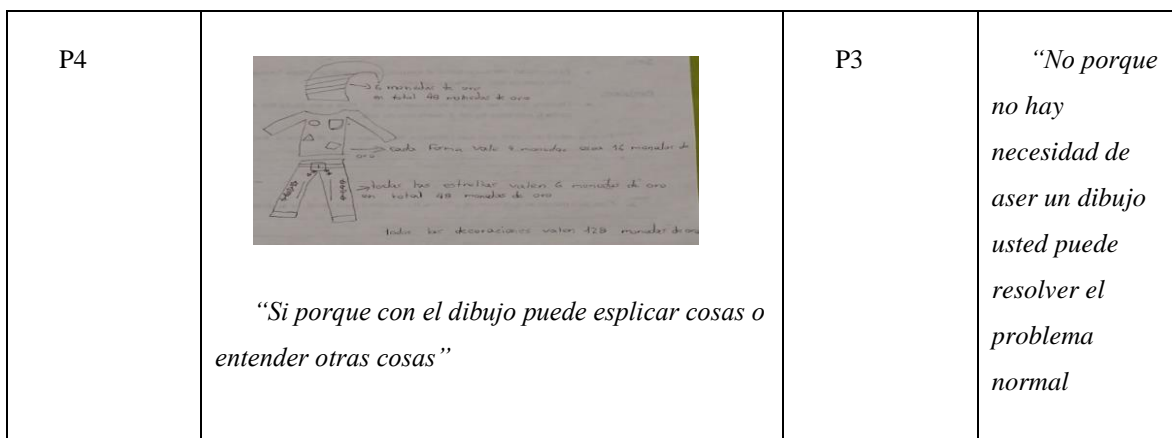 P4
→ 6 monedas de oro
en total 48 monedas de oro
→ cada Forma vale 4 monedas 16 monedas de
oro
→ todas las estrellas valen 6 monedas de oro
en total 48 monedas de oro
todas las decoraciones valen 128 monedas de oro
“Si porque con el dibujo puede esplicar cosas o
entender otras cosas”
P3
“No porque
no hay
necesidad de
aser un dibujo
usted puede
resolver el
problema
normal